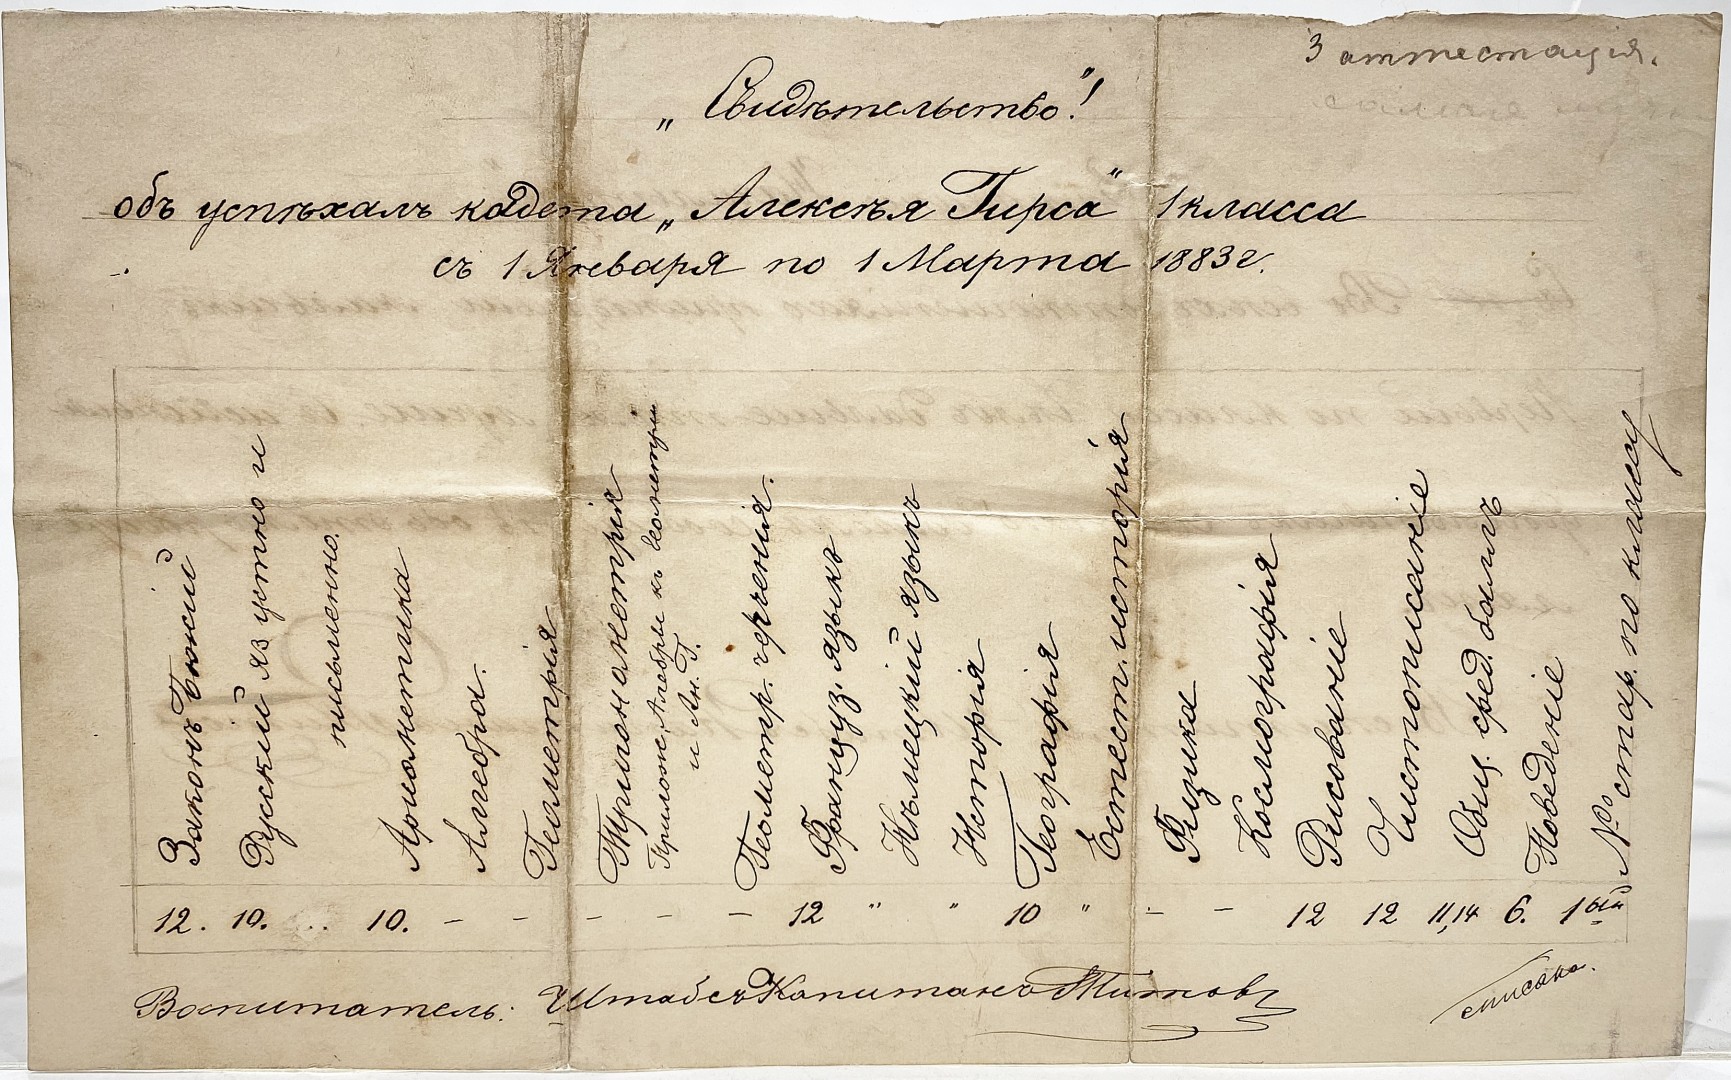 3 аттестація.
„Свидѣтельство“!
объ успѣхахъ кадета „Алексѣя Гирса“ 1 класса
съ 1 Января по 1 Марта 1883 г.
Законъ Божій
Русскій яз устно и
письменно.
Ариѳметика
Алгебра.
Геометрія
Тригонометрія
Прилож. Алгебры къ геометріи
и Ан. Г.
Геометр. черченія.
Француз. языкъ
Нѣмецкій языкъ
Исторія
Географія
Естест. исторія
Физика
Космографія
Рисованіе
Чистописаніе
Общ. сред. балъ
Поведеніе
№ стар. по классу
12. 10. 10. – – – – – 12 " " 10 " – – 12 12 11,14 6. 1ый
Воспитатель: Штабсъ Капитанъ Титовъ
списано.